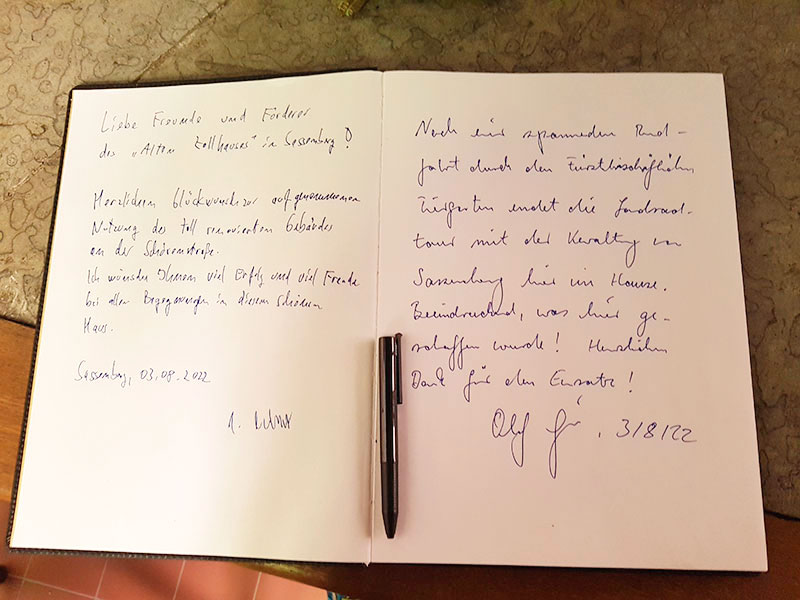 Liebe Freunde und Förderer
des „Alten Zollhauses" in Sassenberg!
Herzlichen Glückwunsch zur aufgenommenen
Nutzung des toll renovierten Gebäudes
an der Schürenstraße.
Ich wünsche Ihnen viel Erfolg und viel Freude
bei allen Begegnungen in diesem schönen
Haus.
Sassenberg, 03.08.2022
Nach einer spannenden Rund-
fahrt durch den Fürstbischöflichen
Tiergarten endet die Landrad-
tour mit der Verwaltung von
Sassenberg hier im Hause.
Beeindruckend, was hier ge-
schaffen wurde! Herzlichen
Dank für den Einsatz!
Olaf 3/8/22